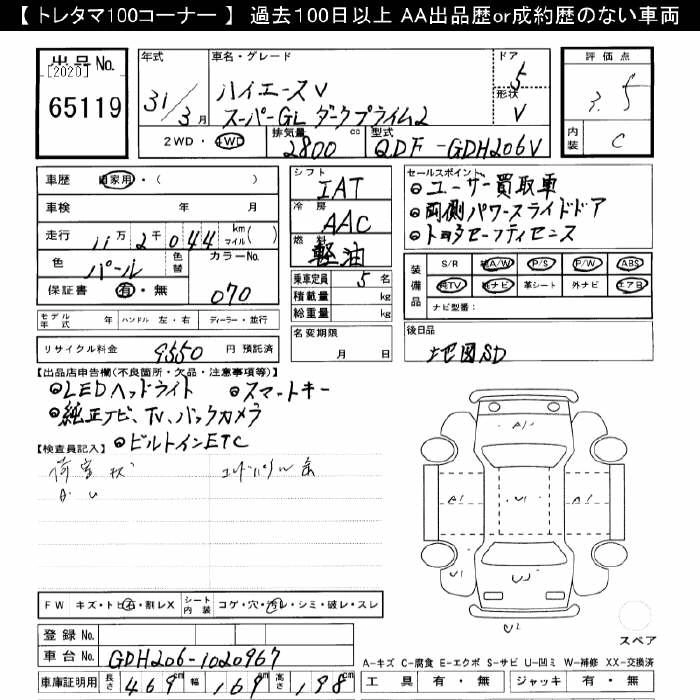 【 トレタマ100コーナー 】 過去100日以上 AA出品歴or成約歴のない車両
出品No.
[2020]
65119
年式
31/3月
車名・グレード
ハイエースV
スーパーGL ダークプライム2
ドア
5
形状
V
評価点
3.5
内装
C
2WD・4WD
排気量
2800cc
型式
QDF-GDH206V
車歴 自家用・( )
車検 年 月
走行 11万2千044 km マイル( )
色 パール 色替
カラーNo.
070
保証書 有・無
モデル年式 年 ハンドル 左・右 ディーラー・並行
リサイクル料金 9550 円 預託済
シフト
IAT
冷房
AAC
燃料
軽油
乗車定員 5名
積載量 kg
総重量 kg
名変期限
月 日
セールスポイント
◎ユーザー買取車
◎両側パワースライドドア
◎トヨタセーフティセンス
装備品
S/R 純A/W P/S P/W ABS
純TV 純ナビ 革シート 外ナビ エアB
ナビ型番:
後日品
地図SD
【出品店申告欄(不良箇所・欠品・注意事項等)】
◎LEDヘッドライト ◎スマートキー
◎純正ナビ、TV、バックカメラ
◎ビルトインETC
【検査員記入】
荷室
A1
A1
U1
A1
U1
FW キズ・トビ石・割レX シート内装 コゲ・穴・汚レ・シミ・破レ・スレ
登録No.
車台No. GDH206-1020967
車庫証明用 長さ 469cm 幅 169cm 高さ 198cm
スペア
A-キズ C-腐食 E-エクボ S-サビ U-凹ミ W-補修 XX-交換済
工具 有・無 ジャッキ 有・無